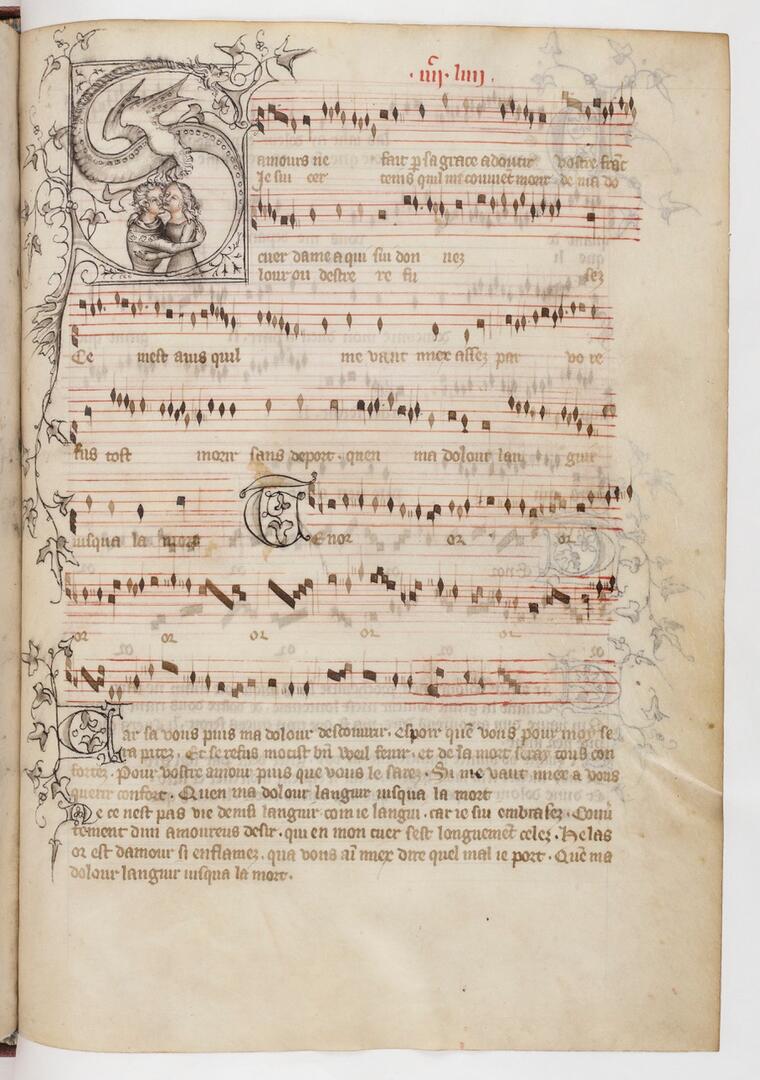 .iiij. liiij.
S amours ne fait p̱ sa grace adoucir vostre franc
Je sui cer tems quil me couuiēt morir de ma do
cuer dame a qui sui don nez
lour ou destre re fu sez
Ce mest auis quil me vaut miex assez par vo re
fus tost morir sans deport . quen ma dolour lan guir
iusqua la mort Tenor or or
or or or or or
Car sa vous puis ma dolour descouurir . espoir quē vous pour moy se
ra pitez . Et se refus mocist bñ weil fenir . et de la mort seray tous con
fortez . Pour vostre amour puis que vous le sarez . Si me vaut miex a vous
querir confort . Quen ma dolour languir iusqua la mort
Ne ce nest pas vie demi languir com ie langui . car ie sui embrasez .
tement dun amoureus desir . qui en mon cuer sest longuemēt celez . Helas
or est damour si enflamez . qua vous aī miex dire quel mal ie port . Quē ma
dolour languir iusqua la mort .